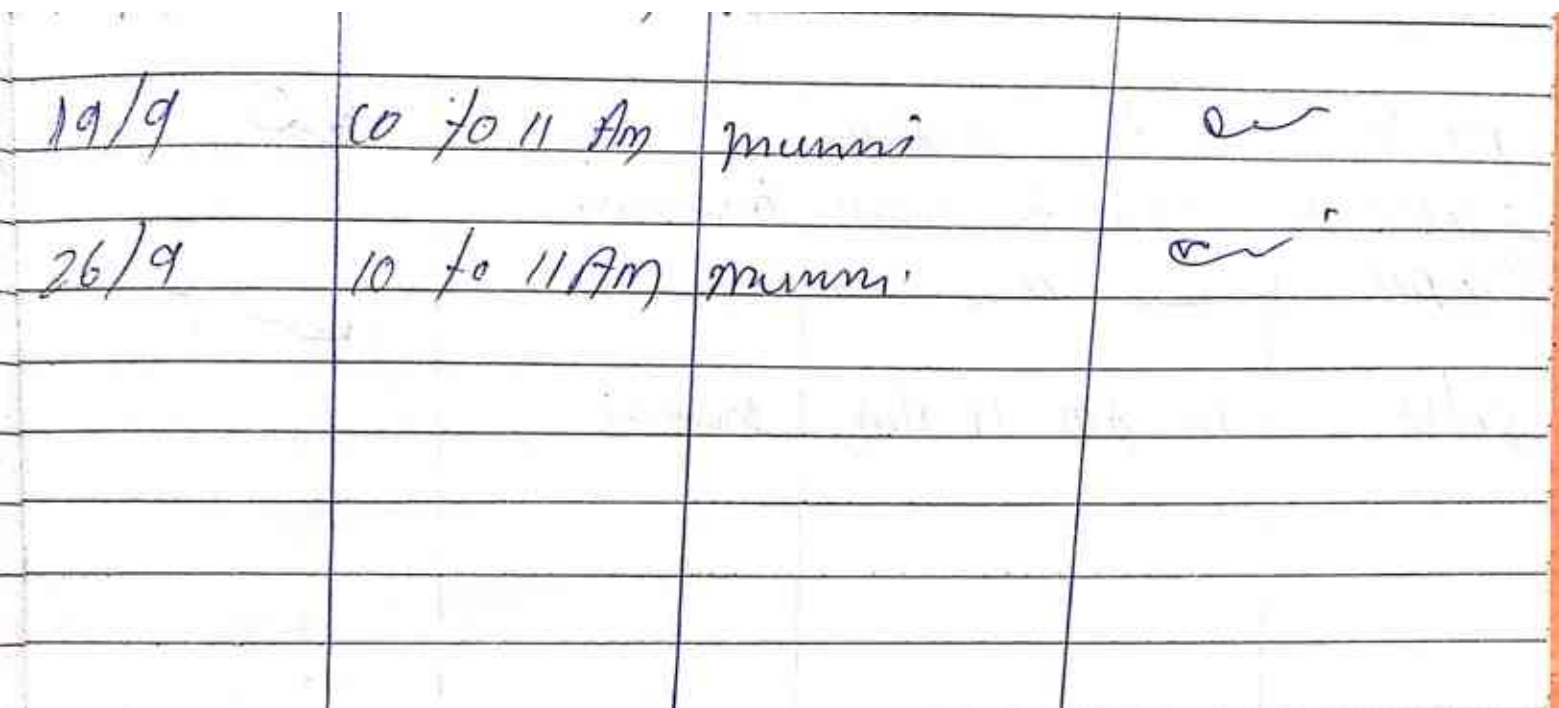 19/9 10 to 11 Am munni
26/9 10 to 11 Am munni